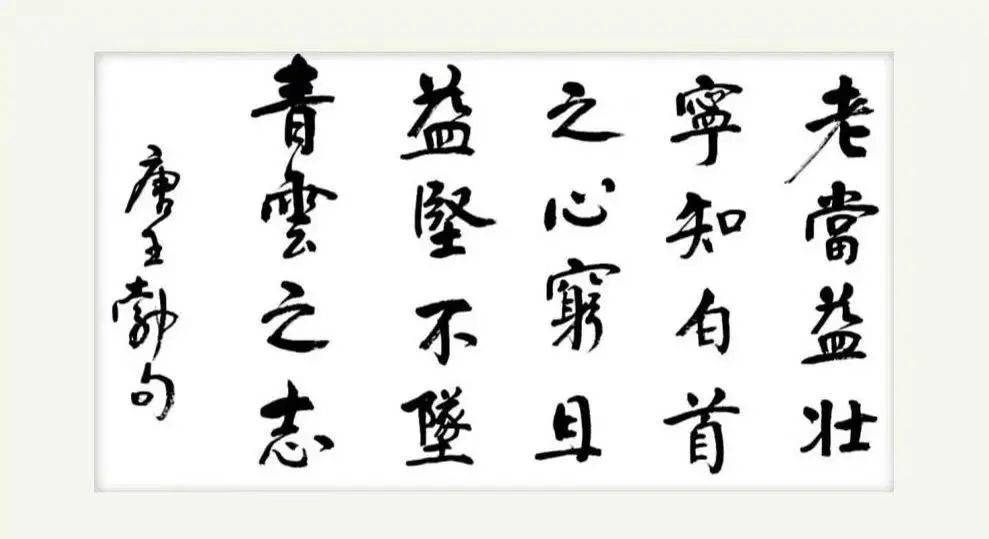 老當益壯
寧知白首
之心窮且
益堅不墜
青雲之志
唐王勃句